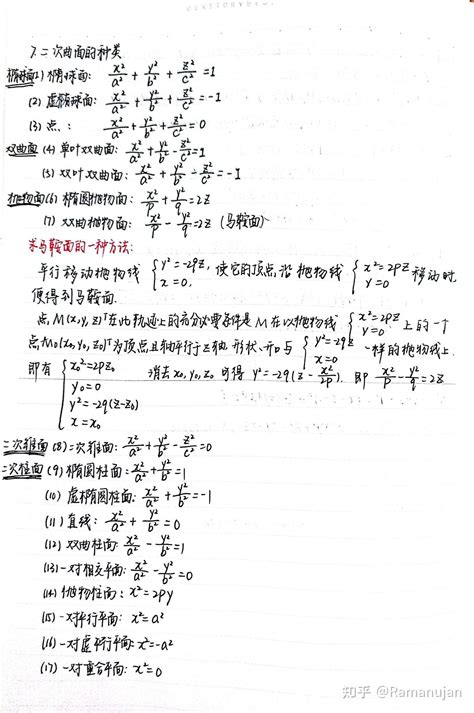 7. 二次曲面的种类
椭球面 (1) 椭球面: x²/a² + y²/b² + z²/c² = 1
(2) 虚椭球面: x²/a² + y²/b² + z²/c² = -1
(3) 点: x²/a² + y²/b² + z²/c² = 0
双曲面 (4) 单叶双曲面: x²/a² + y²/b² - z²/c² = 1
(5) 双叶双曲面: x²/a² + y²/b² - z²/c² = -1
抛物面 (6) 椭圆抛物面: x²/p + y²/q = 2z
7) 双曲抛物面: x²/p - y²/q = 2z (马鞍面)
求马鞍面的一种方法:
平行移动抛物线 { y² = -2qz, x = 0, 使它的顶点沿抛物线 { x² = 2pz y = 0 移动时,
便得到马鞍面.
点 M(x, y, z)ᵀ在此轨迹上的充分必要条件是 M 在以抛物线 { x² = 2pz y = 0 上的一个
点M₀(x₀, y₀, z₀)ᵀ为顶点,且轴平行于z轴 形状、开口与 { y² = -2qz x = 0 一样的抛物线上.
即有 { x₀² = 2pz₀
y₀ = 0
y² = -2q(z-z₀)
x = x₀
消去 x₀, y₀, z₀ 可得 y² = -2q(z - x²/2p). 即 x²/p - y²/q = 2z
二次锥面 (8) 二次锥面: x²/a² + y²/b² - z²/c² = 0
二次柱面 (9) 椭圆柱面: x²/a² + y²/b² = 1
(10) 虚椭圆柱面: x²/a² + y²/b² = -1
(11) 直线: x²/a² + y²/b² = 0
(12) 双曲柱面: x²/a² - y²/b² = 1
(13) 一对相交平面: x²/a² - y²/b² = 0
(14) 抛物柱面: x² = 2py
(15) 一对平行平面: x² = a²
(16) 一对虚平行平面: x² = -a²
(17) 一对重合平面: x² = 0
知乎 @Ramanujan